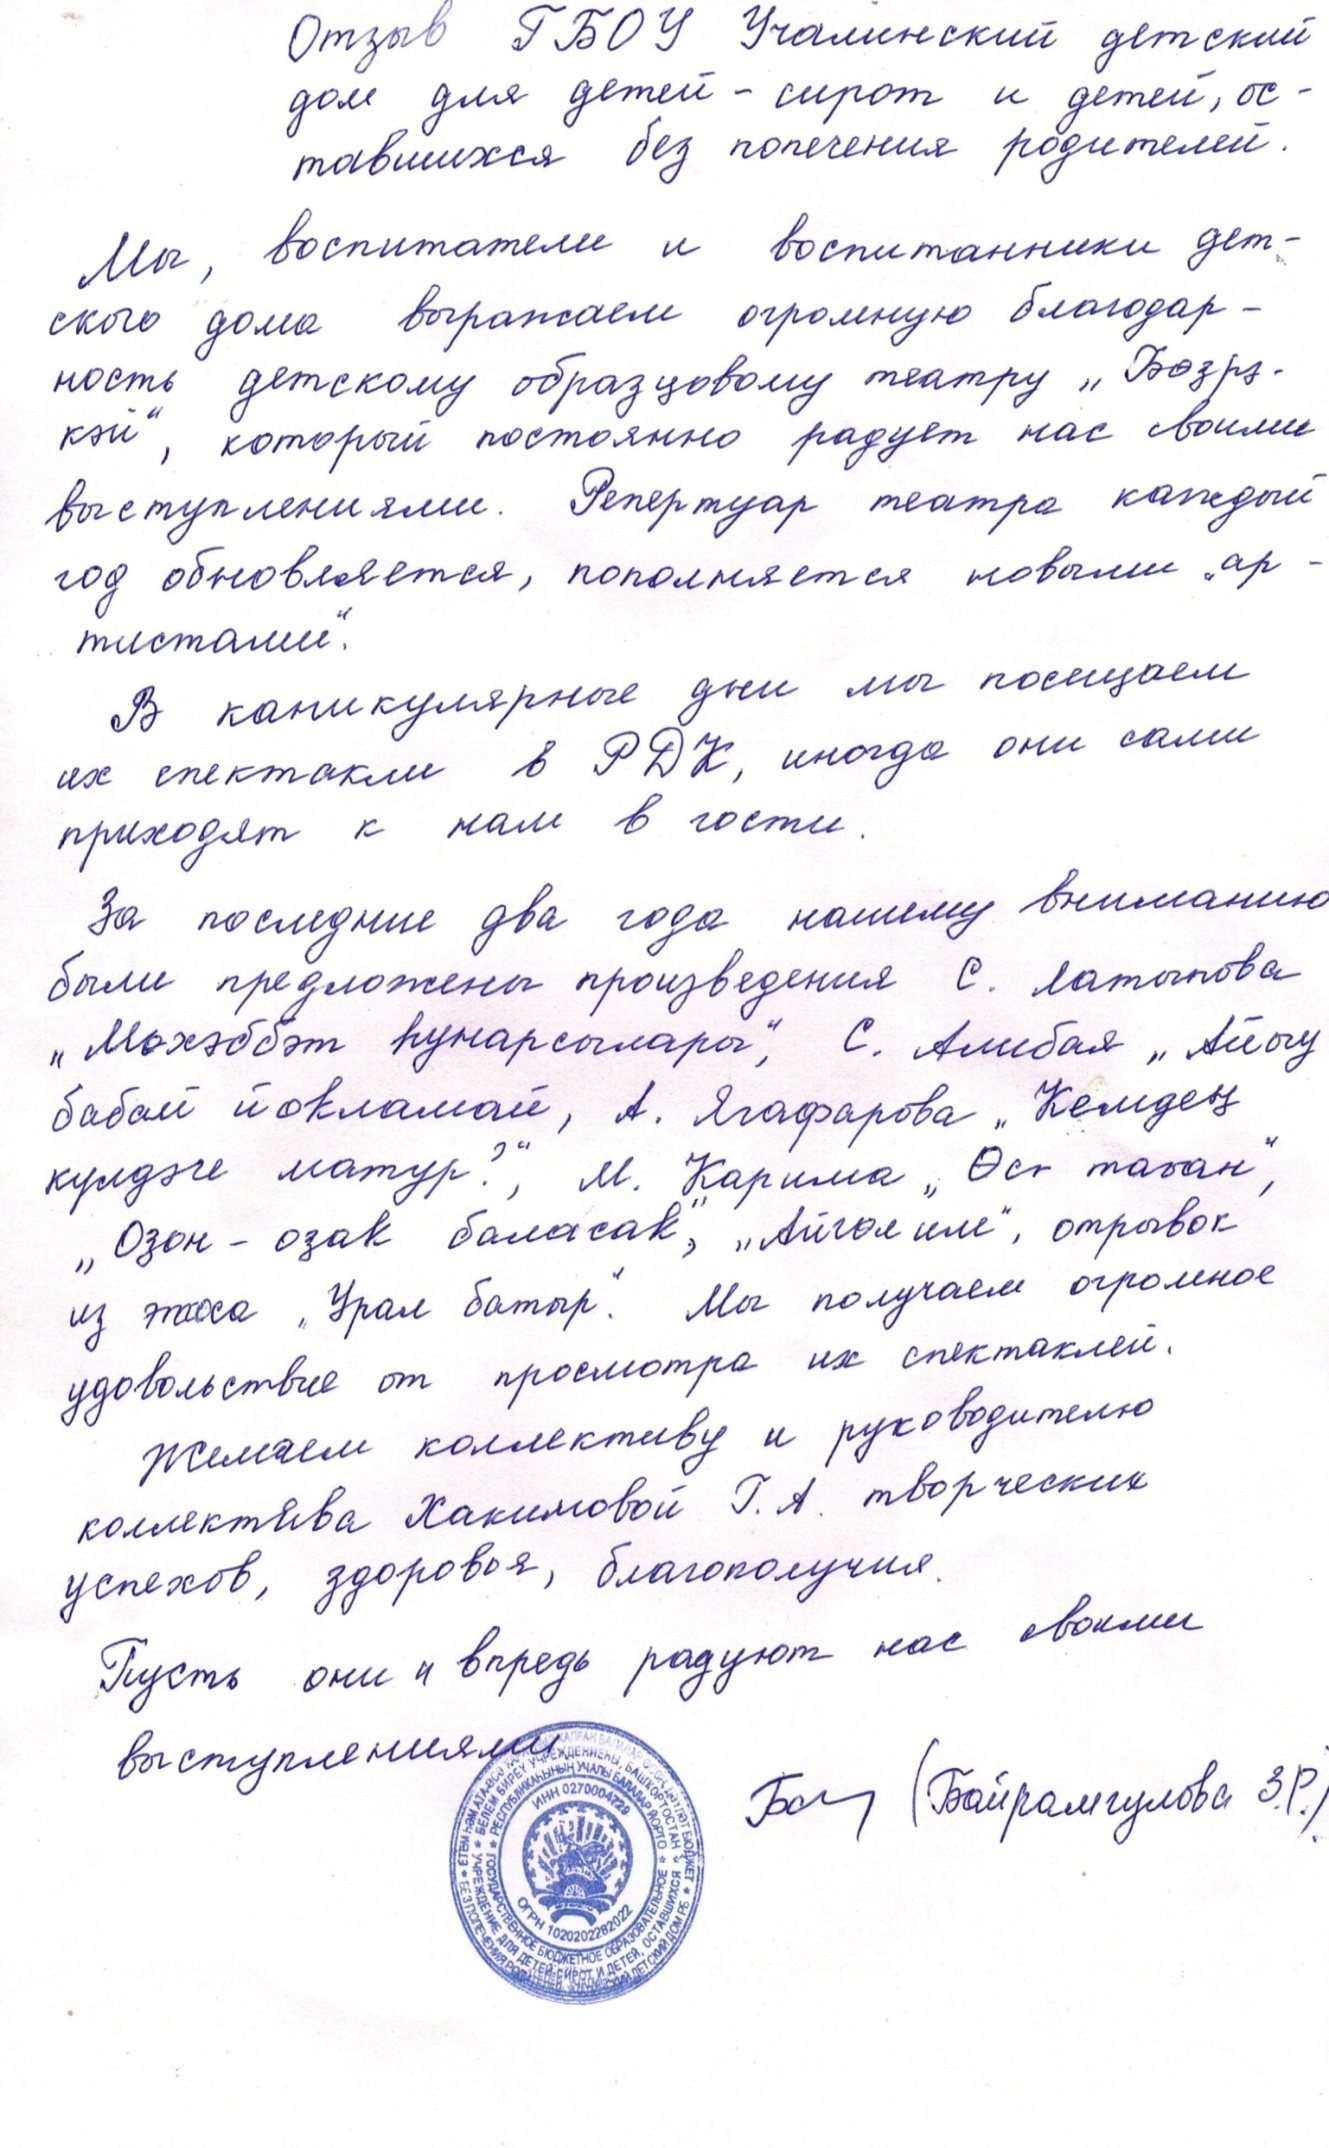 Отзыв ГБОУ Учалинский детский
дом для детей - сирот и детей, ос-
тавшихся без попечения родителей.
Мы, воспитатели и воспитанники дет-
ского дома выражаем огромную благодар-
ность детскому образцовому театру „Бәзрә-
кәй“, который постоянно радует нас своими
выступлениями. Репертуар театра каждый
год обновляется, пополняется новыми „ар-
тистами“.
В каникулярные дни мы посещаем
их спектакли в РДК, иногда они сами
приходят к нам в гости.
За последние два года нашему вниманию
были предложены произведения С. Латыпова
„Мөхәббәт һунарсылары“, С. Алибая „Айыу
бабай йокламай, А. Ягафарова „Кемдең
күлдәге матур?“, М. Карима „Өсө таган“,
„Озон - озак баласак“, „Айгөл иле“, отрывок
из эпоса „Урал батыр“. Мы получаем огромное
удовольствие от просмотра их спектаклей.
Желаем коллективу и руководителю
коллектива Хакимовой Г.А. творческих
успехов, здоровья, благополучия.
Пусть они и впредь радуют нас своими
выступлениями
(Байрамгулова З.Р.)
ИНН 0270004729
ОГРН 1020202282022
РЕСПУБЛИКАҺЫНЫҢ УЧАЛЫ БАЛАЛАР ЙОРТО
ГОСУДАРСТВЕННОЕ БЮДЖЕТНОЕ ОБРАЗОВАТЕЛЬНОЕ
БЕЛЕМ БИРЕҮ УЧРЕЖДЕНИЕҺЫ, БАШКОРТОСТАН
УЧРЕЖДЕНИЕ ДЛЯ ДЕТЕЙ-СИРОТ И ДЕТЕЙ, ОСТАВШИХСЯ